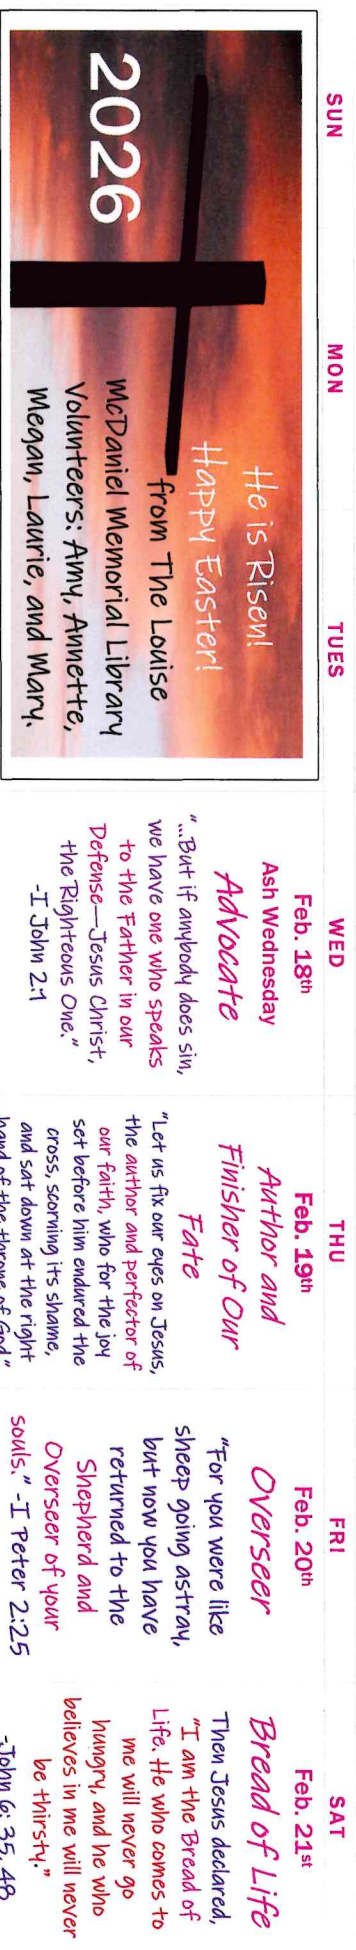 SUN MON TUES WED THU FRI SAT
2026
He is Risen!
Happy Easter!
from The Louise
McDaniel Memorial Library
Volunteers: Amy, Annette,
Megan, Laurie, and Mary.
Feb. 18th
Ash Wednesday
Advocate
"...But if anybody does sin,
we have one who speaks
to the Father in our
Defense—Jesus Christ,
the Righteous One."
-I John 2:1
Feb. 19th
Author and
Finisher of Our
Fate
"Let us fix our eyes on Jesus,
the author and perfector of
our faith, who for the joy
set before him endured the
cross, scorning its shame,
and sat down at the right
hand of the throne of God"
Feb. 20th
Overseer
"For you were like
sheep going astray,
but now you have
returned to the
Shepherd and
Overseer of your
souls." -I Peter 2:25
Feb. 21st
Bread of Life
Then Jesus declared,
"I am the Bread of
Life. He who comes to
me will never go
hungry, and he who
believes in me will never
be thirsty."
-John 6: 35, 48